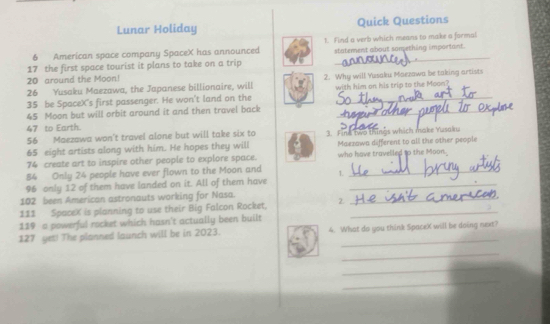 Lunar Holiday
6 American space company SpaceX has announced
17 the first space tourist it plans to take on a trip
20 around the Moon!
26 Yusaku Maezawa, the Japanese billionaire, will
35 be SpaceX's first passenger. He won't land on the
45 Moon but will orbit around it and then travel back
47 to Earth.
56 Maezawa won't travel alone but will take six to
65 eight artists along with him. He hopes they will
74 create art to inspire other people to explore space.
84 Only 24 people have ever flown to the Moon and
96 only 12 of them have landed on it. All of them have
102 been American astronauts working for Nasa.
111 SpaceX is planning to use their Big Falcon Rocket,
119 a powerful rocket which hasn't actually been built
127 yet! The planned launch will be in 2023.
Quick Questions
1. Find a verb which means to make a formal
statement about something important.
announced.
2. Why will Yusaku Maezawa be taking artists
with him on his trip to the Moon?
So they mak art to
other people to explore
space.
3. Find two things which make Yusaku
Maezawa different to all the other people
who have travelled to the Moon.
1. He will bring artists
2. He isn't american.
4. What do you think SpaceX will be doing next?